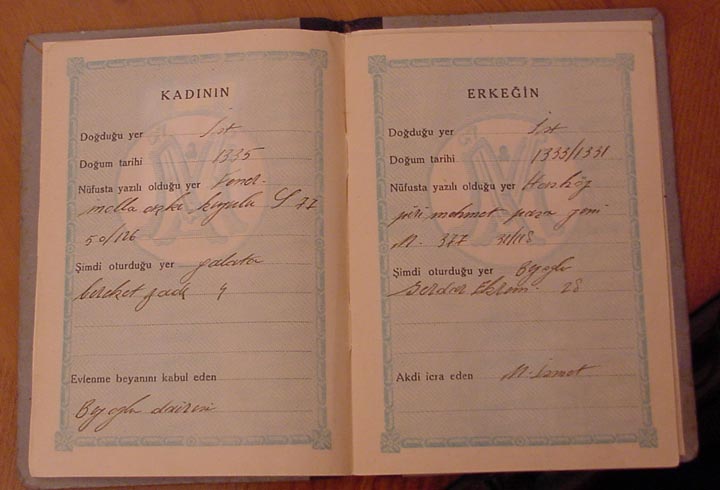 KADININ
Doğduğu yer İst
Doğum tarihi 1335
Nüfusta yazılı olduğu yer Fener
molla aşkı S 77
50/126
Şimdi oturduğu yer galata
bereket 4
Evlenme beyanını kabul eden
Beyoğlu dairesi
ERKEĞİN
Doğduğu yer İst
Doğum tarihi 1333/1331
Nüfusta yazılı olduğu yer Hasköy
piri mehmet paşa
M. 377
Şimdi oturduğu yer Beyoğlu
Serdar Ekrem 28
Akdi icra eden M. İsmet